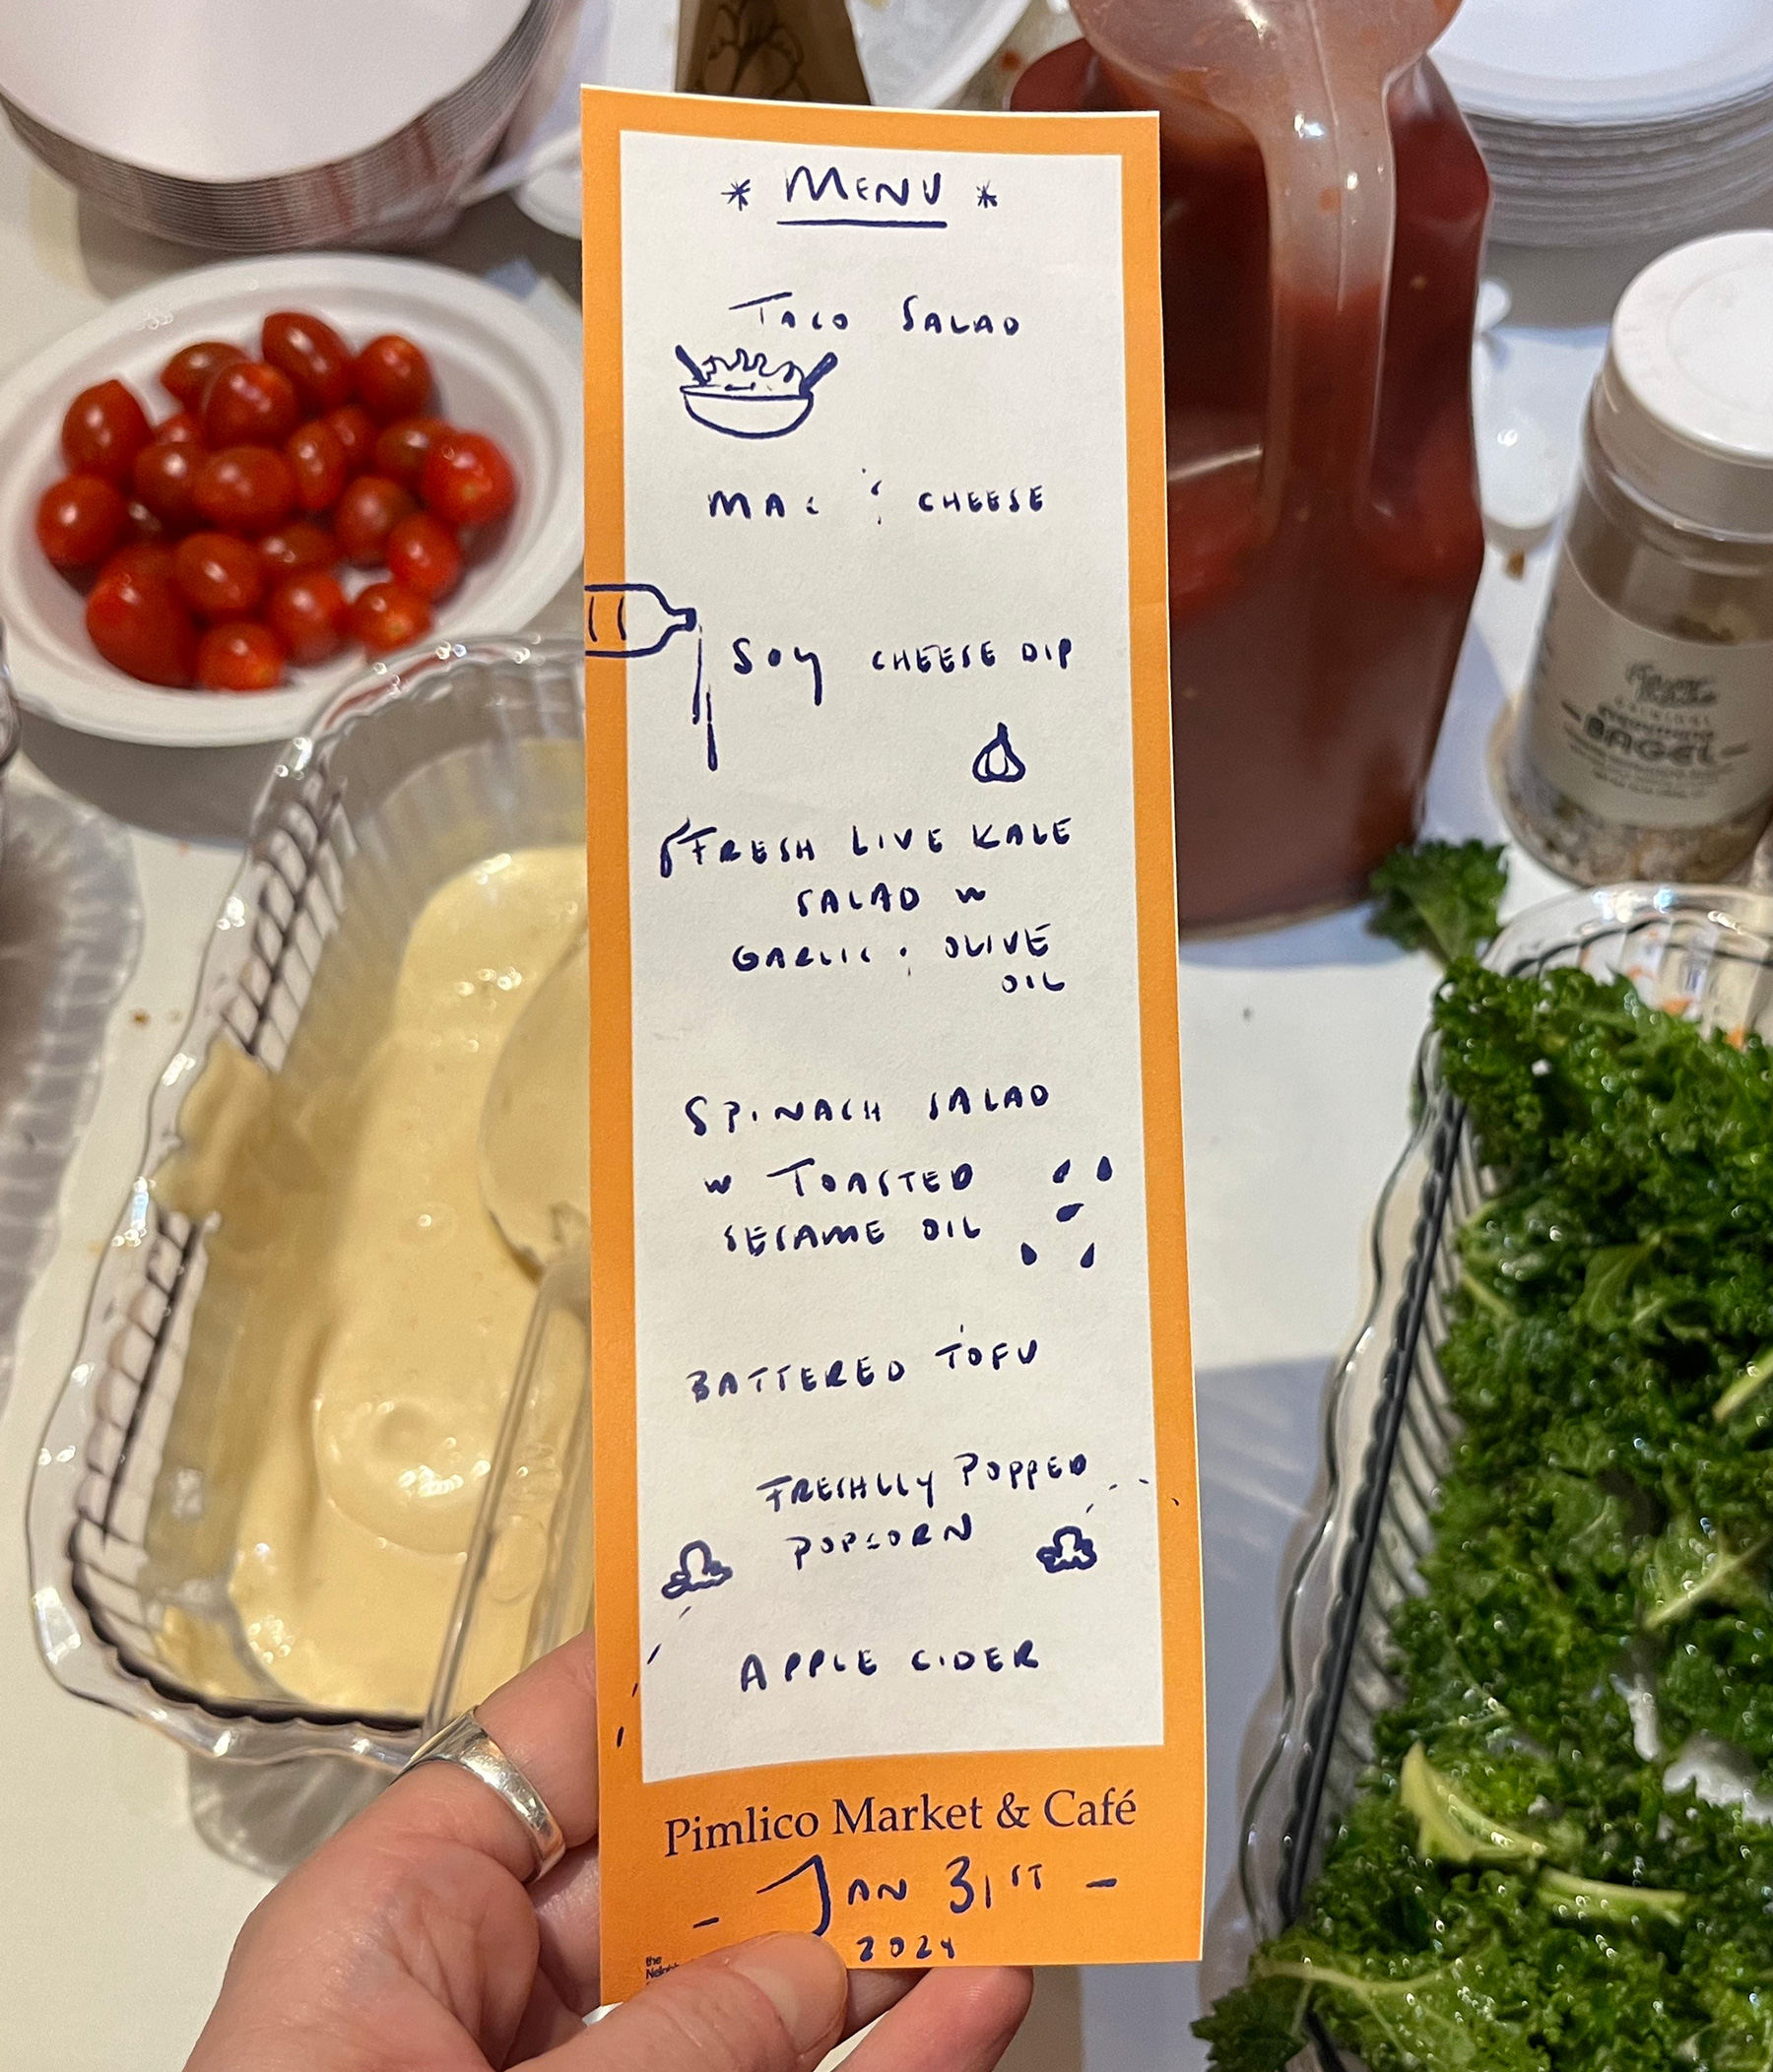 * MENU *
TACO SALAD
MAC & CHEESE
SOY CHEESE DIP
FRESH LIVE KALE
SALAD W
GARLIC & OLIVE
OIL
SPINACH SALAD
W TOASTED
SESAME OIL
BATTERED TOFU
FRESHLLY POPPED
POPCORN
APPLE CIDER
Pimlico Market & Café
- JAN 31ST -
2024
the
BAGEL